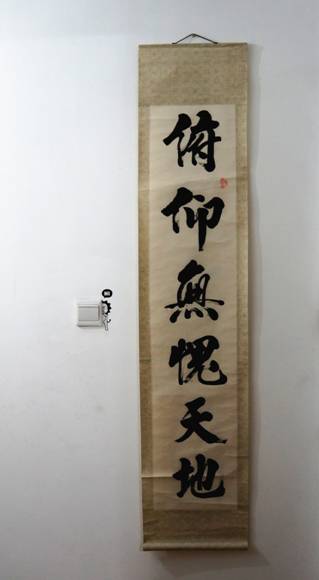 俯仰無愧天地